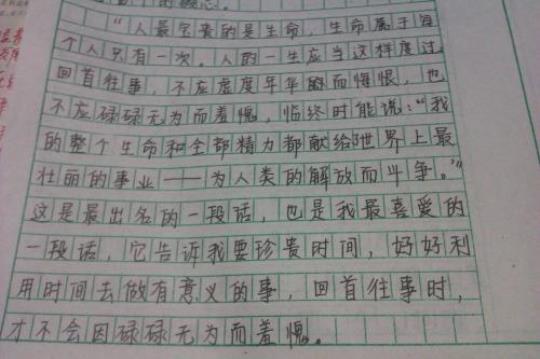 "人最宝贵的是生命,生命属于每
个人只有一次。人的一生应当这样度过
回首往事,不应虚度年华而悔恨,也
不应碌碌无为而羞愧,临终时能说:"我
的整个生命和全部精力都献给世界上最
壮丽的事业——为人类的解放而斗争。"
这是最出名的一段话,也是我最喜爱的
一段话,它告诉我要珍贵时间,好好利
用时间去做有意义的事,回首往事时,
才不会因碌碌无为而羞愧。